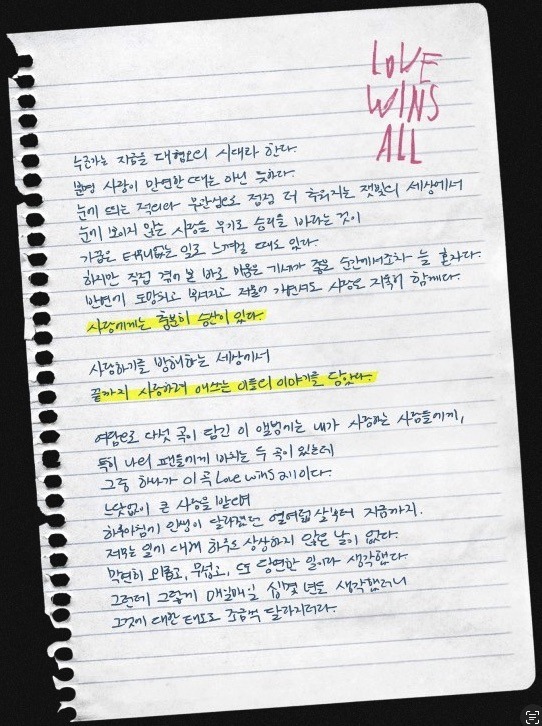 LOVE
WINS
ALL
누군가는 지금을 대혐오의 시대라 한다.
분명 사랑이 만연한 때는 아닌 듯하다.
눈에 띄는 적의와 무관심으로 점점 더 추워지는 잿빛의 세상에서
눈에 보이지 않는 사랑을 무기로 승리를 바라는 것이
가끔은 터무니없는 일로 느껴질 때도 있다.
하지만 직접 겪어 본 바로 미움은 기세가 좋을 순간에서조차 늘 혼자다.
반면에 도망치고 부서지고 저물어 가면서도 사랑은 지독히 함께다.
사랑에게는 충분히 승산이 있다.
사랑하기를 방해하는 세상에서
끝까지 사랑하려 애쓰는 이들의 이야기를 담았다.
여담으로 다섯 곡이 담긴 이 앨범에는 내가 사랑하는 사람들에게,
특히 나의 팬들에게 바치는 두 곡이 있는데
그중 하나가 이 곡 Love wins all이다.
느닷없이 큰 사랑을 받으며
하루아침에 인생이 달라졌던 열여덟 살부터 지금까지.
저무는 일기 대해 하루도 상상하지 않은 날이 없다.
막연히 외롭고, 무섭고, 또 당연한 일이라 생각했다.
그런데 그렇게 매일매일 십몇 년을 생각했더니
그것에 대한 태도도 조금씩 달라지더라.